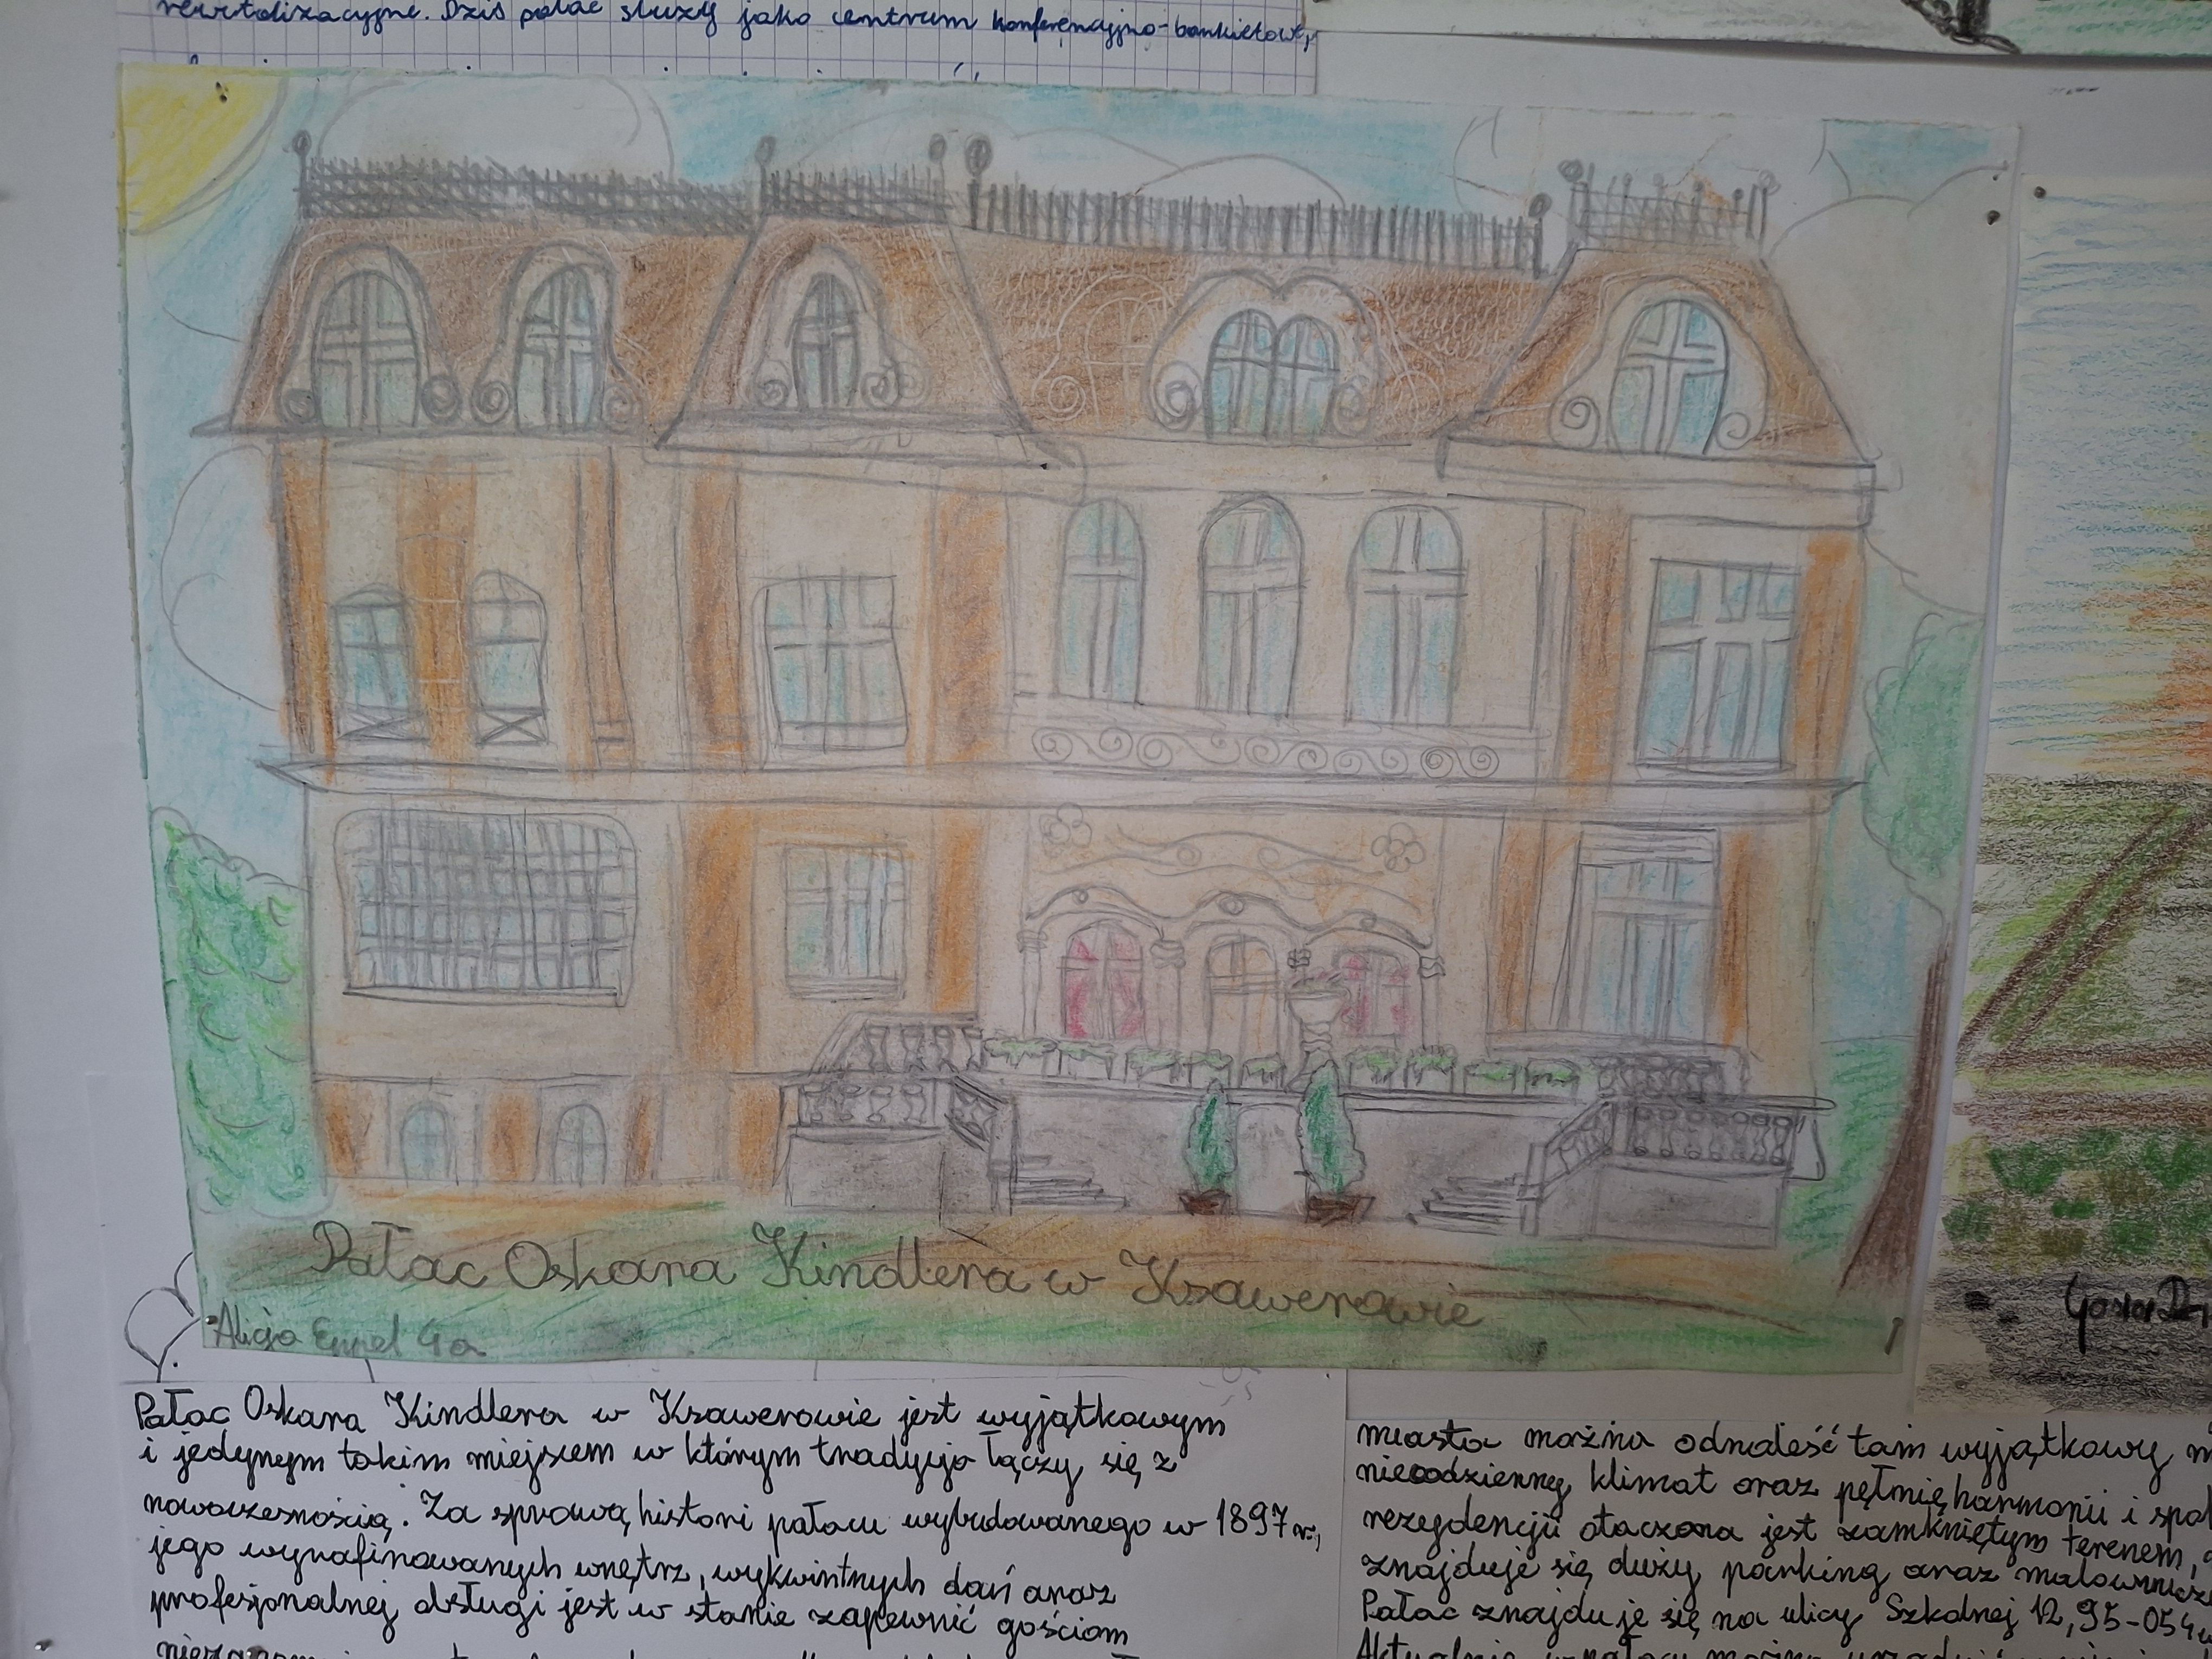 rewitalizacyjne. Dziś pałac służy jako centrum konferencyjno-bankietowe,
Pałac Oskara Kindlera w Ksawerowie
Alicja Eppel 4a
Pałac Oskara Kindlera w Ksawerowie jest wyjątkowym
i jedynym takim miejscem w którym tradycja łączy się z
nowoczesnością. Za sprawą histori pałacu wybudowanego w 1897 r.,
jego wyrafinowanych wnętrz, wykwintnych dań oraz
profesjonalnej obsługi jest w stanie zapewnić gościom
miasta można odnaleść tam wyjątkowy
niecodzienny klimat oraz pełnię harmonii i
rezydencji otaczona jest zamkniętym terenem,
znajduje się duży parking oraz
Pałac znajduje się na ulicy Szkolnej 12, 95-054
Aktualnie w pałacu można